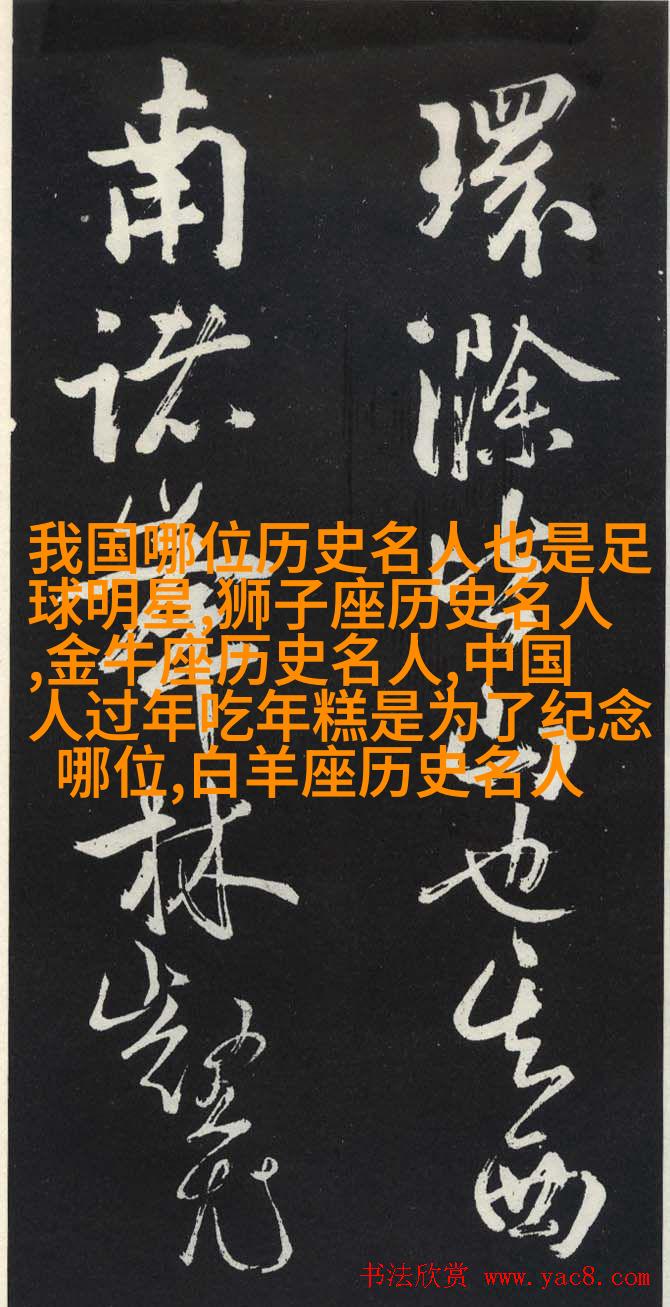 環滁皆山也其西
南諸峯林壑尤
我国哪位历史名人也是足
球明星,狮子座历史名人
,金牛座历史名人,中国
人过年吃年糕是为了纪念
哪位,白羊座历史名人
书法欣赏 www.yac8.com